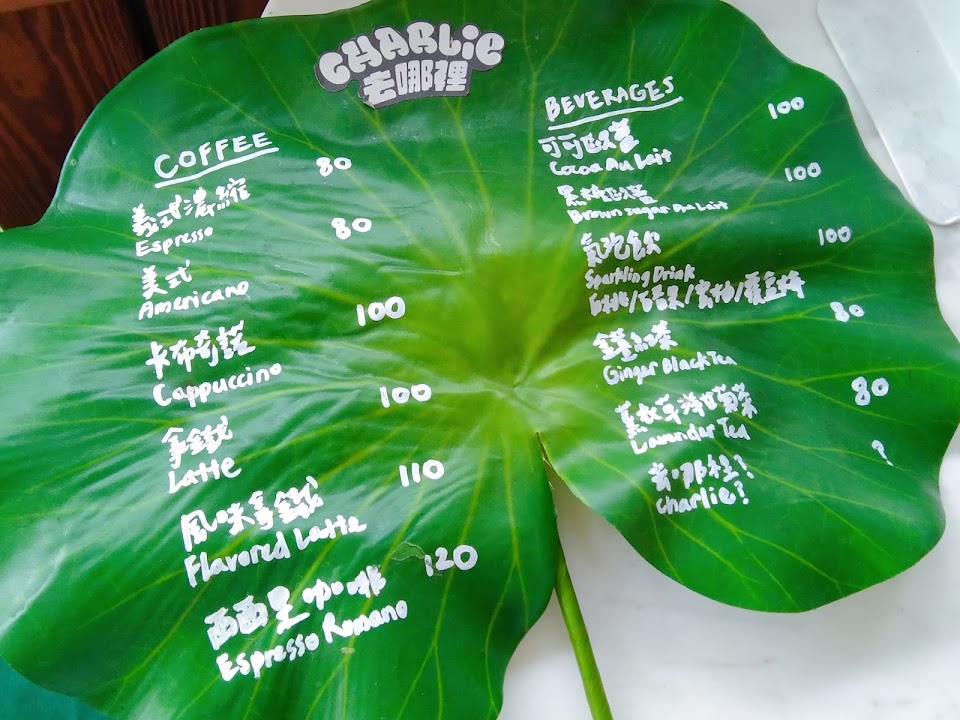 CHARLIE
去哪裡
COFFEE
義式濃縮 80
Espresso
美式 80
Americano
卡布奇諾 100
Cappuccino
拿鐵 100
Latte
風味拿鐵 110
Flavored Latte
西西里咖啡 120
Espresso Romano
BEVERAGES
可可歐蕾 100
Cocoa Au Lait
黑糖歐蕾 100
Brown sugar Au Lait
氣泡飲 100
Sparkling Drink
薑紅茶 80
Ginger Black Tea
薰衣草洋甘菊茶 80
Lavender Tea
去哪裡! ?
Charlie?